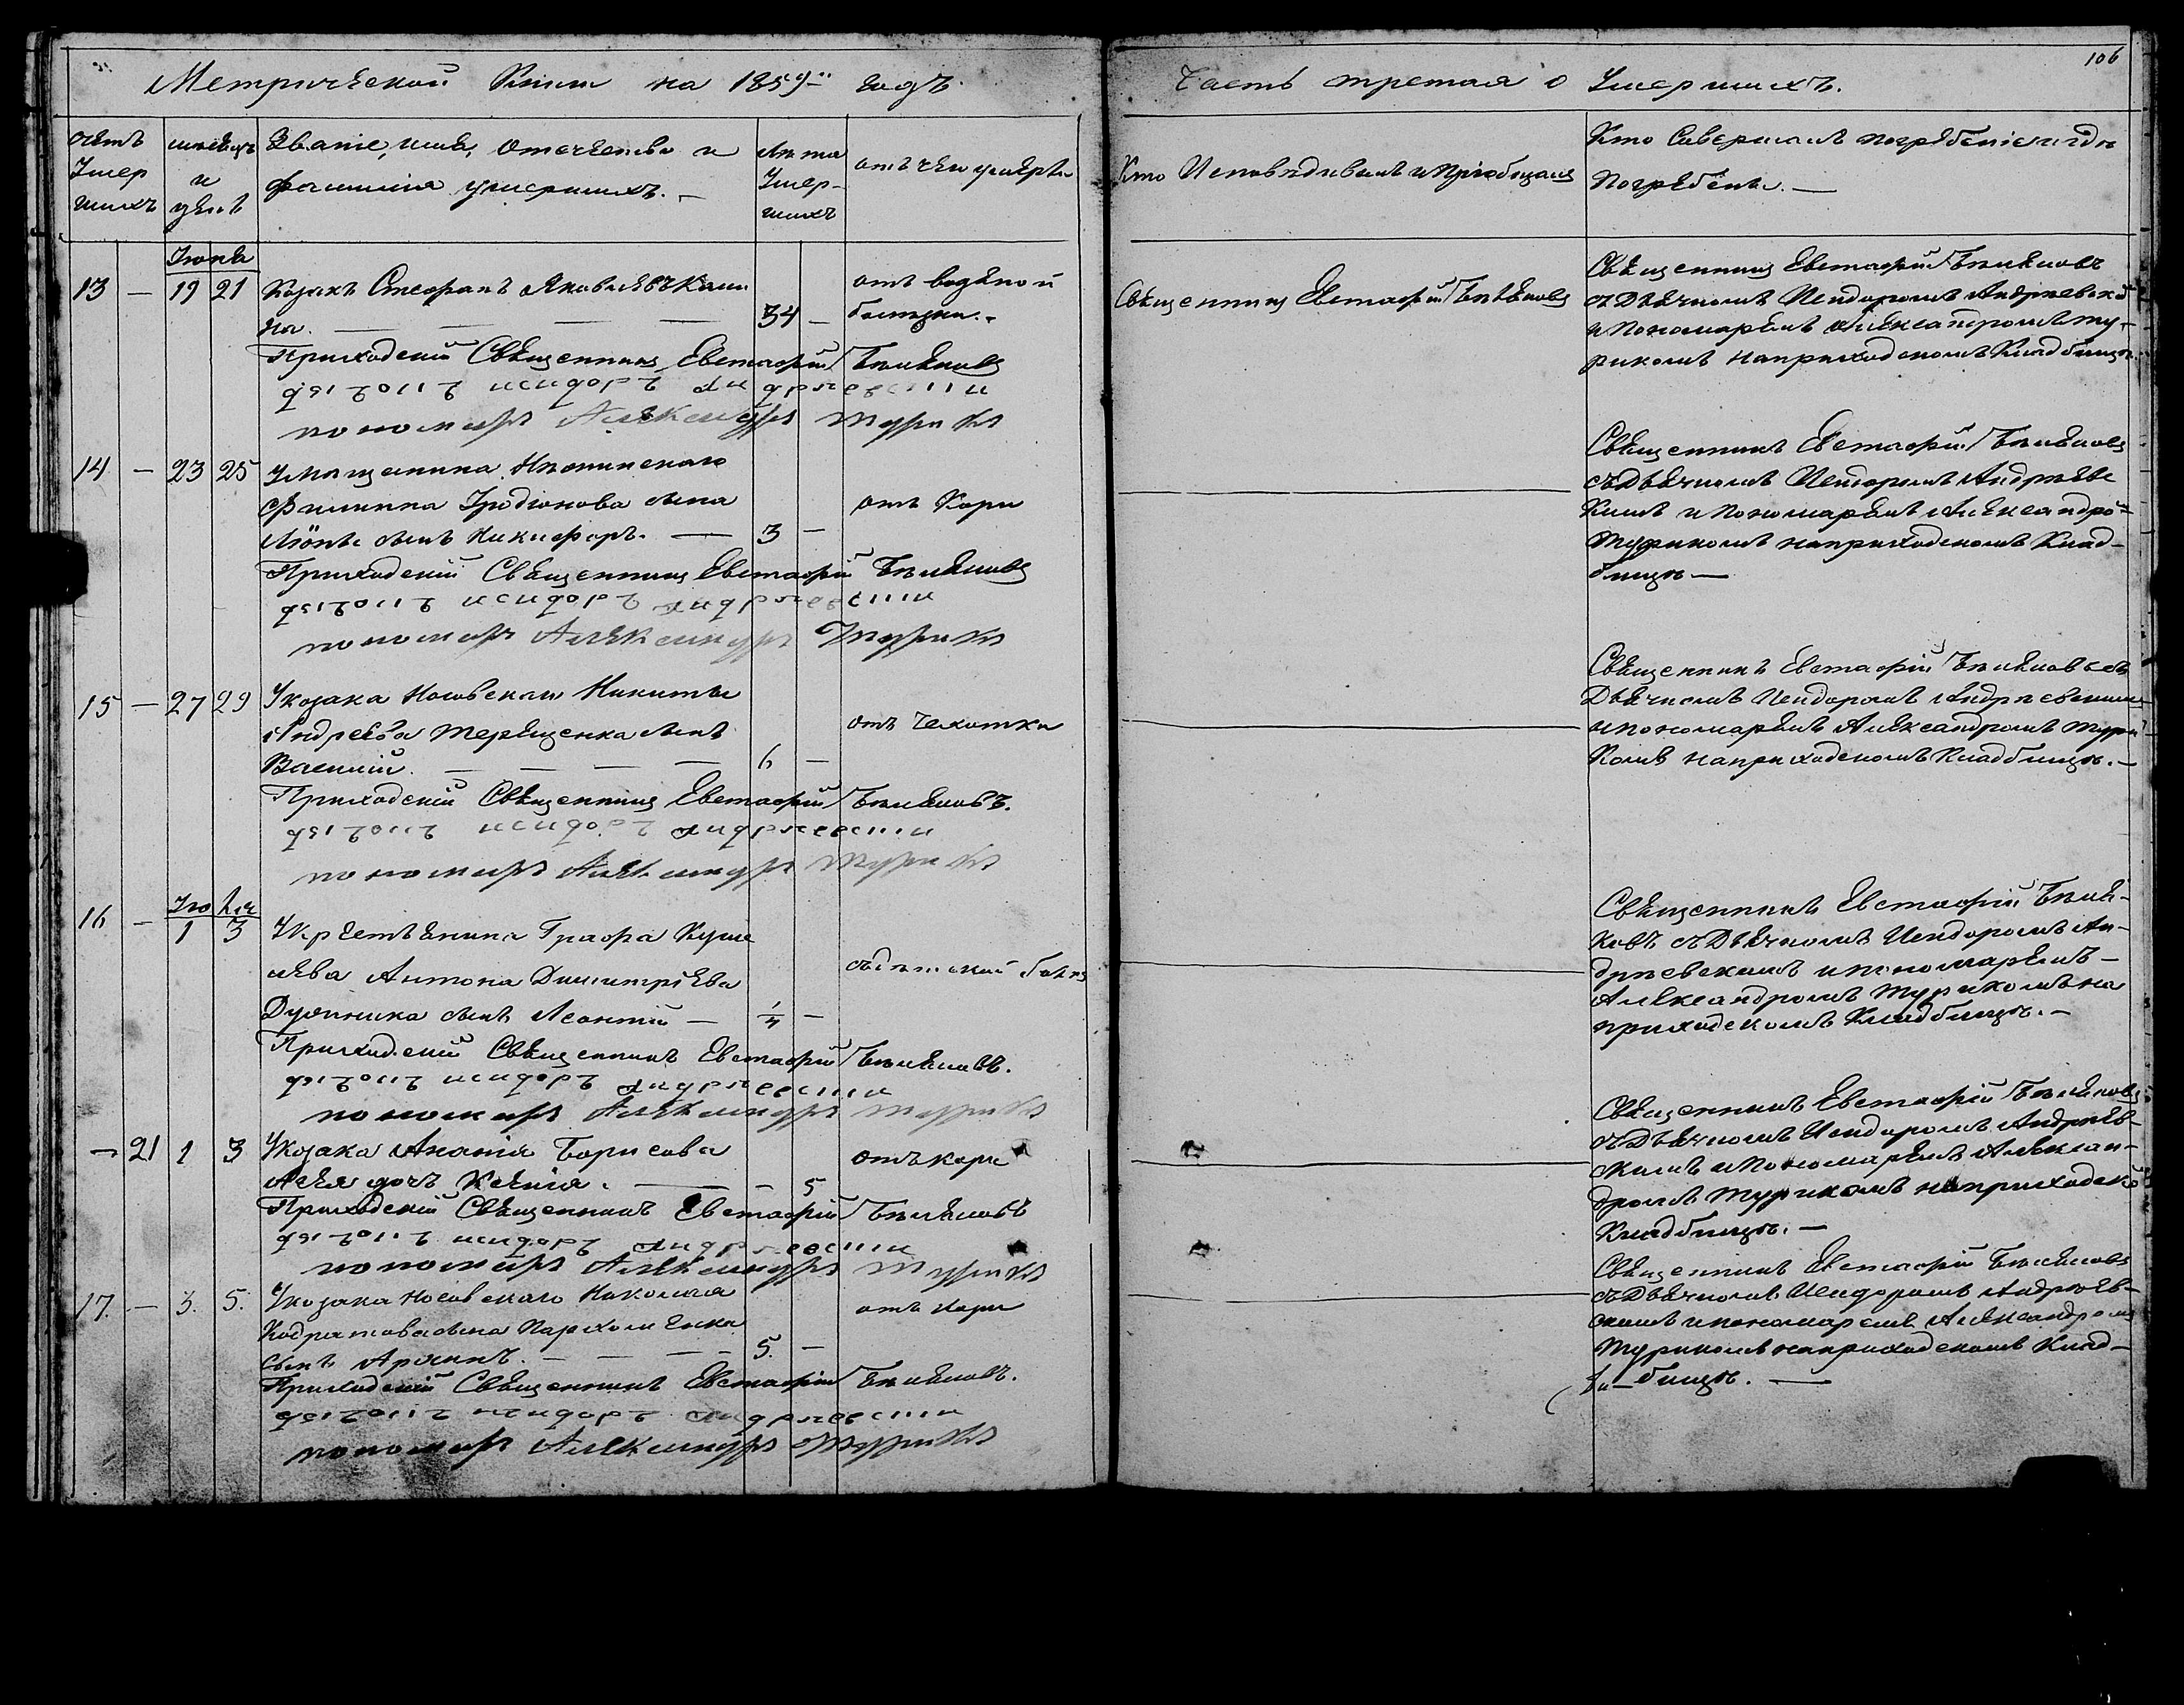 Метрической Книги на 1859й годъ.
Часть третая о Умершихъ.
106
Счетъ Умер шихъ
мѣсяцъ и день
Званіе, имя, отечество и фамилія умершихъ. —
Лѣта Умер- шихъ
отъ чего умеръ
Кто Исповѣдывалъ и Пріобщалъ
Кто Совершалъ погрѣбеніе и гдѣ
Погребенъ. —
Іюня
13 — 19 21 Козакъ Стефанъ Яковлевъ
34 —
отъ водяной
болѣзни.
Приходскій Священникъ Евстафій Бѣляковъ
дьячокъ исидоръ андрѣевскій
пономарь Александръ турикъ
Священникъ Евстафій Бѣляковъ
Священникъ Евстафій Бѣляковъ
съ Дьячкомъ Исидоромъ Андрѣевскй
и Пономарёмъ Александромъ ту-
рикомъ на приходскомъ Кладбищѣ.
14 — 23 25 У мѣщанина Нѣжинскаго
Филиппа Іродіонова сына
сынъ Никифоръ. — 3 —
отъ Кори
Приходскій Священникъ Евстафій Бѣляковъ
дьячокъ исидоръ андрѣевскій
пономарь Александръ Турикъ
Священникъ Евстафій Бѣляковъ
съ Дьячкомъ Исидоромъ Андрѣевс
кимъ и Пономарёмъ Александро-
Турикомъ на приходскомъ Клад-
бищѣ —
15 — 27 29 У козака Носовскаго Никиты
Андреева Терещенка сынъ
Василій. — — — — 6 —
отъ чахотки
Приходскій Священникъ Евстафій Бѣляковъ.
дьячокъ исидоръ андрѣевскій
пономарь Александръ турикъ
Священникъ Евстафій Бѣляковъ съ
Дьячкомъ Исидоромъ Андрѣевскимъ
и пономарёмъ Александромъ тури-
комъ на приходскомъ Кладбищѣ. —
Іюля
16 — 1 3 У крестьянина Графа Куше
лева Антона Димитріева
Дудника сынъ Леонтій — 1/4 —
Приходскій Священникъ Евстафій Бѣляковъ.
дьячокъ исидоръ андрѣевскій
пономарь Александръ турикъ
Священникъ Евстафій Бѣля-
ковъ съ Дьячкомъ Исидоромъ Ан-
дрѣевскимъ и пономарёмъ —
Александромъ Турикомъ на
приходскомъ Кладбищѣ. —
— 21 1 3 У козака Ананія Борисова
дочь Ксенія. — — 5
отъ кори
Приходскій Священникъ Евстафій Бѣляковъ
дьячокъ исидоръ андрѣевскій
пономарь Александръ Турикъ
Священникъ Евстафій Бѣляковъ
съ Дьячкомъ Исидоромъ Андрѣев-
скимъ и Пономарёмъ Алексан-
дромъ Турикомъ на приходско
Кладбищѣ. —
17. — 3. 5. У козака Носовскаго Николая
сына Пархоменка
сынъ — — — 5. —
отъ кори
Приходскій Священникъ Евстафій Бѣляковъ.
дьячокъ исидоръ андрѣевскій
пономарь Александръ Турикъ
Священникъ Евстафій Бѣляковъ
съ Дьячкомъ Исидоромъ Андрѣев-
скимъ и пономарёмъ Александромъ
Турикомъ на приходскомъ Клад-
бищѣ. —